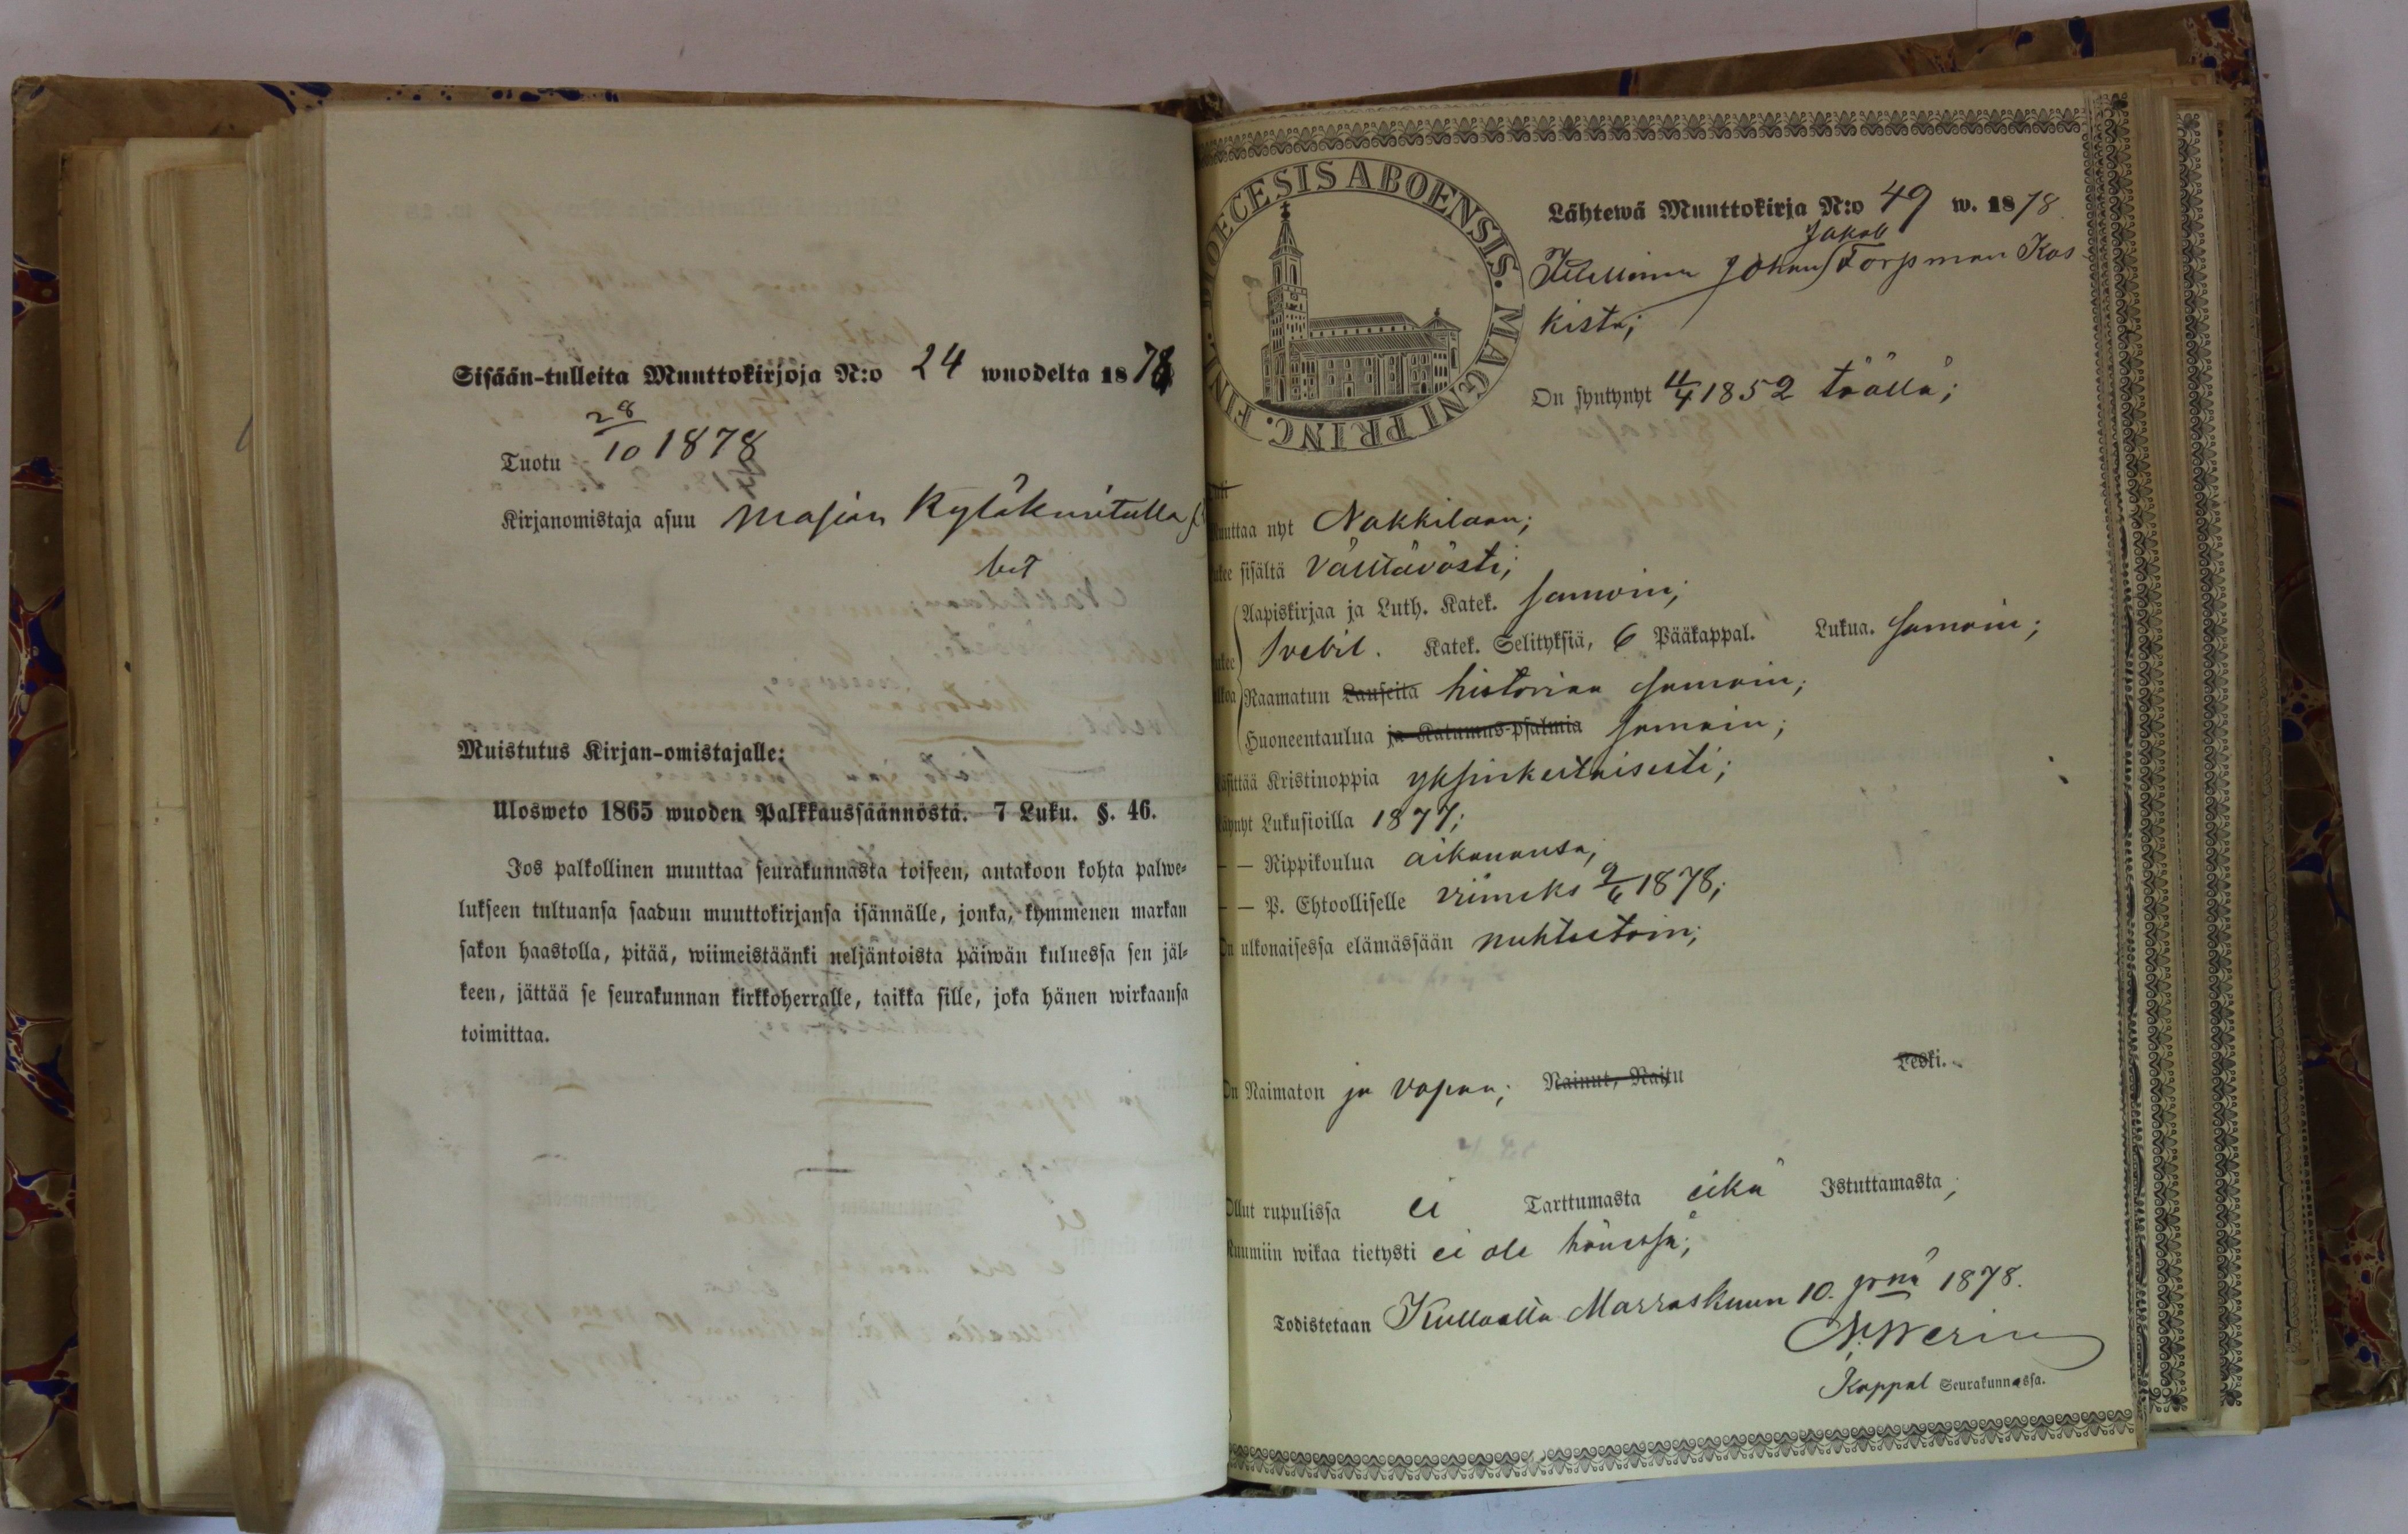 Sisään-tulleita Muuttokirjoja N:o 24 wuodelta 1878
Tuotu 28/10 1878
Kirjanomistaja asuu Masian Kyläkunitulla
bet
Muistutus Kirjan-omistajalle:
Ulosweto 1865 wuoden Palkkaussäännöstä. 7 Luku. §. 46.
Jos palkollinen muuttaa seurakunnasta toiseen, antakoon kohta palwe-
lukseen tultuansa saadun muuttokirjansa isännälle, jonka, kymmenen markan
sakon haastolla, pitää, wiimeistäänki neljäntoista päiwän kuluessa sen jäl-
keen, jättää se seurakunnan kirkkoherralle, taikka sille, joka hänen wirkaansa
toimittaa.
DIOECESIS ABOENSIS. MAGNI PRINC. FINL.
Lähtewä Muuttokirja N:o 49 w. 1878.
Jakob
Itellinen Johan Torpman Kos-
kista;
On syntynyt 11/4 1852 täällä;
Muuttaa nyt Nakkilaan;
Lukee sisältä välttävästi;
Aapiskirjaa ja Luth. Katek. samoin;
Svebil. Katek. Selityksiä, 6 Pääkappal. Lukua. samoin;
Raamatun Lauseita historiaa samoin;
Huoneentaulua ja Katumus-psalmia samoin;
Käsittää Kristinoppia yksinkertaisesti;
Käynyt Lukusioilla 1877;
— — Rippikoulua aikanansa;
— — P. Ehtoolliselle viimeks 9/6 1878;
On ulkonaisessa elämässään nuhteetoin;
On Naimaton ja vapaa; Nainut, Naitu Leski.
Ollut rupulissa ei Tarttumasta eikä Istuttamasta;
Ruumiin wikaa tietysti ei ole hänessä;
Todistetaan Kullaalla Marraskuun 10. pnä 1878.
Kappal Seurakunnassa.